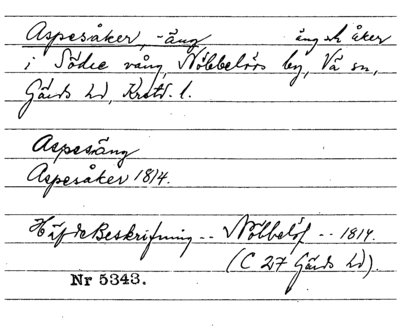 Aspesåker, -äng, äng och åker
i Södre vång, Nöbbelövs by, Vä sn,
Gärds hd, Krstd. l.
Aspesäng
Aspesåker 1814.
Häfdebeskrifning -- Nöbbelöf -- 1814.
(C 27 Gärds hd).
Nr 5343.